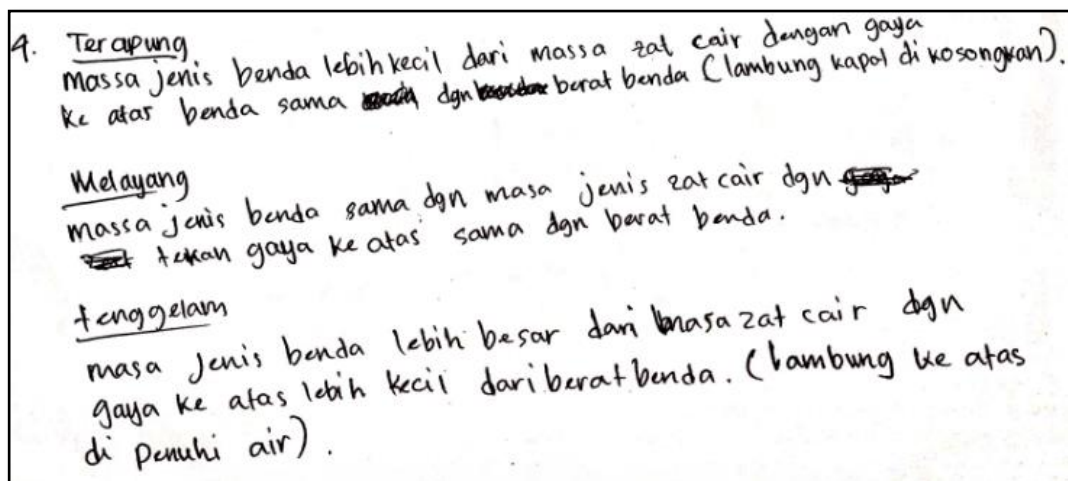 4. Terapung
massa jenis benda lebih kecil dari massa zat cair dengan gaya
ke atas benda sama dgn berat benda (lambung kapal di kosongkan).
Melayang
massa jenis benda sama dgn masa jenis zat cair dgn
tekan gaya ke atas sama dgn berat benda.
tenggelam
masa jenis benda lebih besar dari masa zat cair dgn
gaya ke atas lebih kecil dari berat benda. (lambung ke atas
di penuhi air).